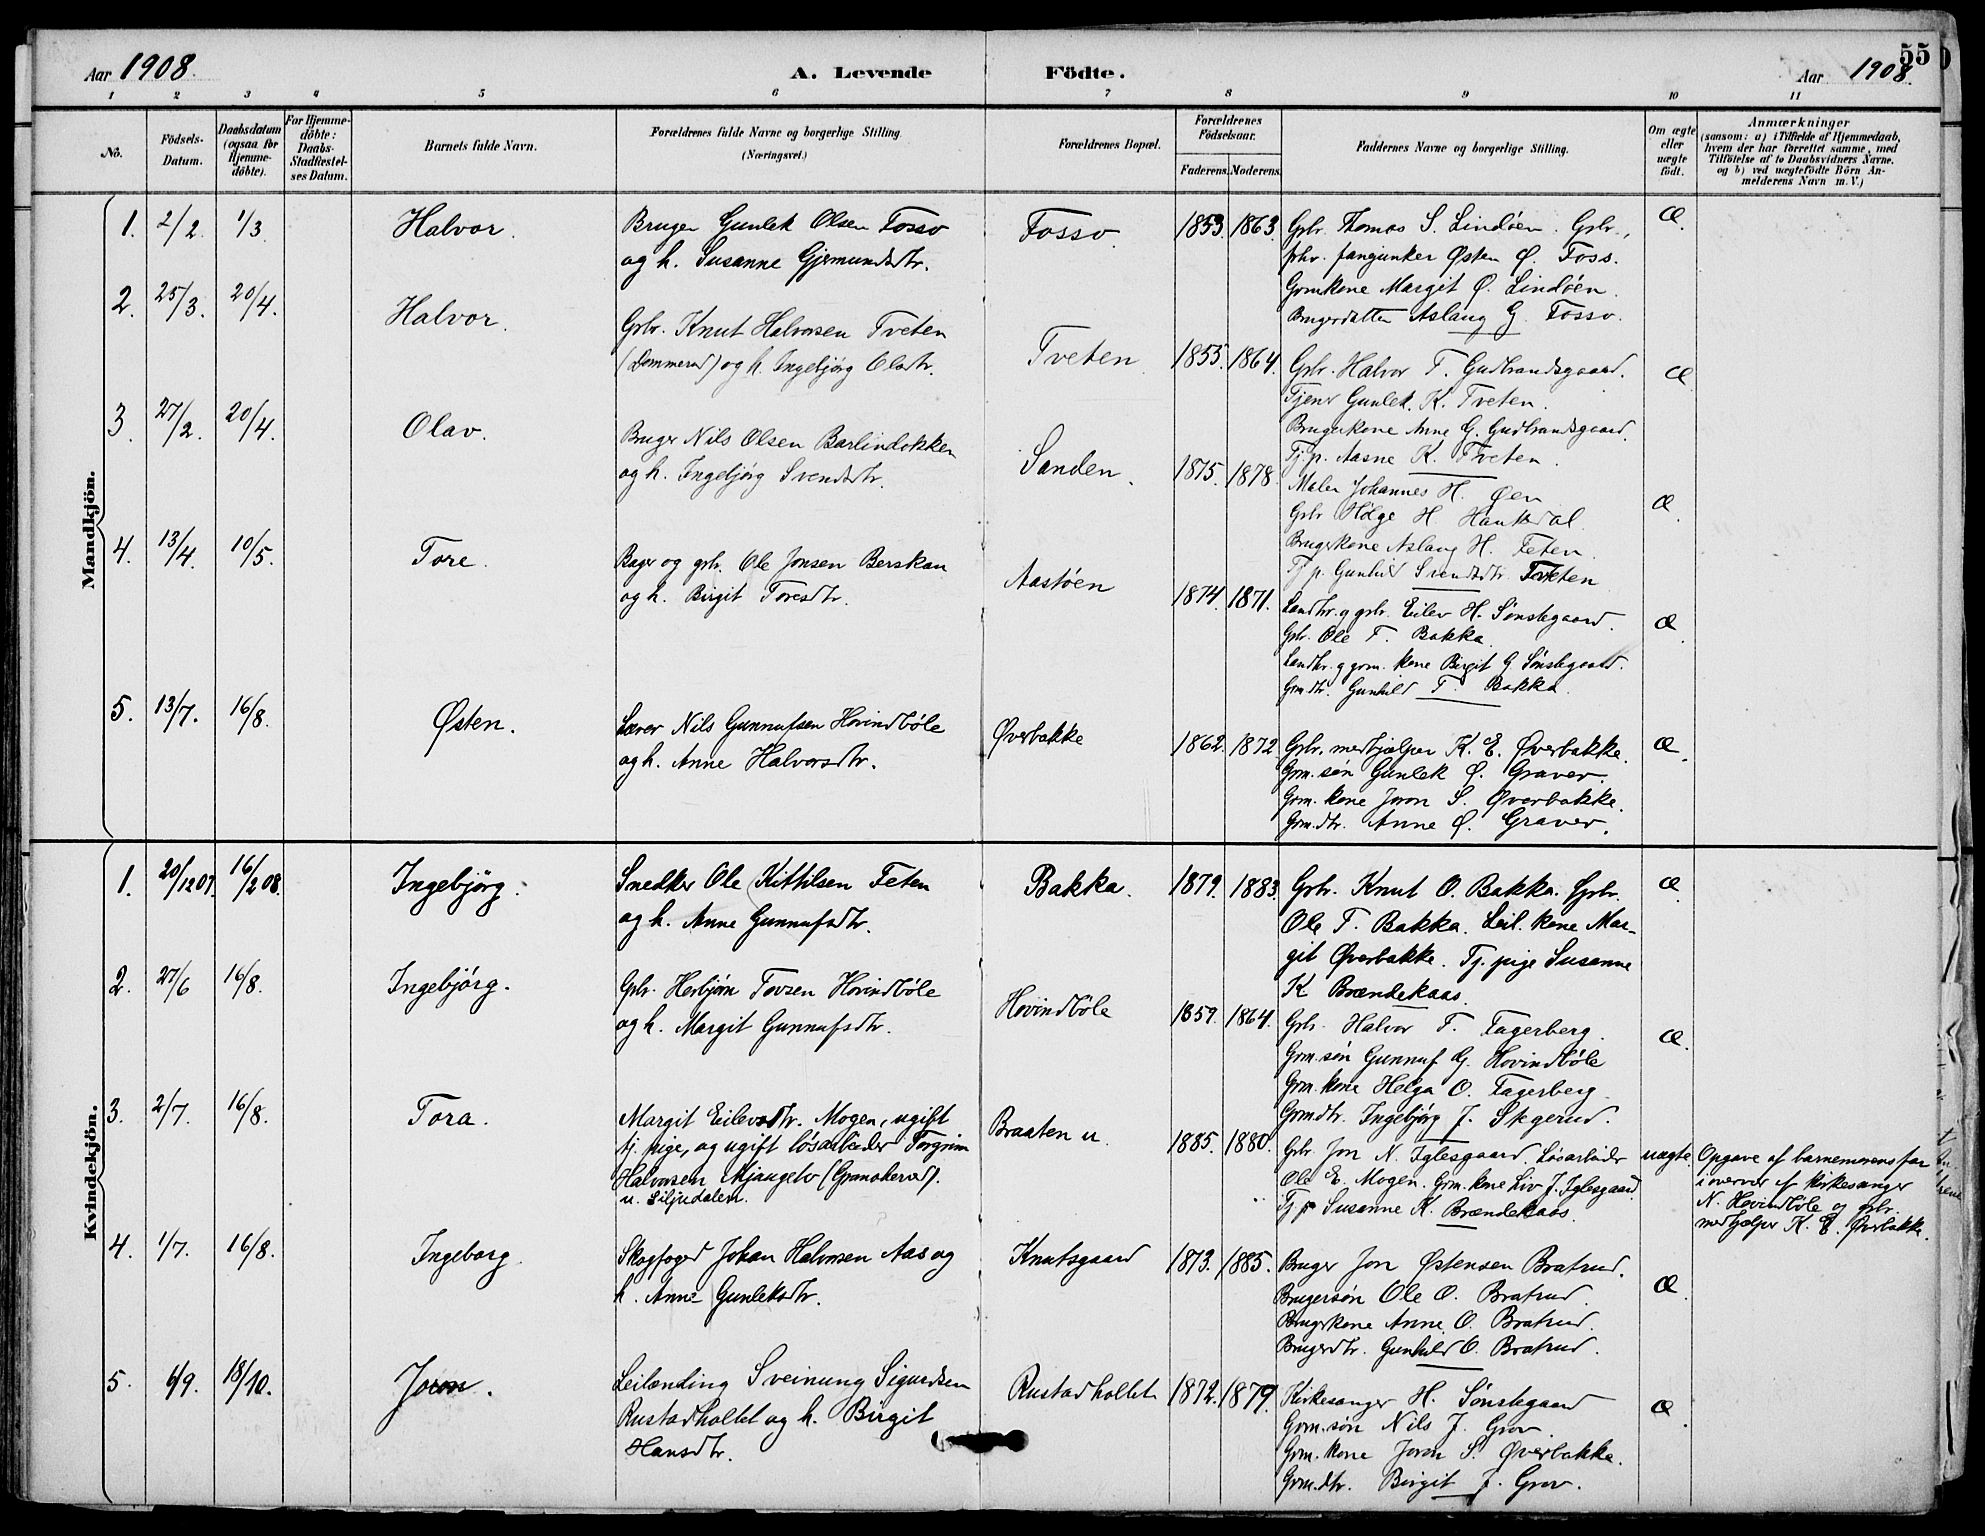 Aar 1908. A. Levende Födte. Aar 1908 55
1 2 3 4 5 6 7 8 9 10 11
No.
Födsels-Datum.
Daabsdatum (ogsaa for Hjemme-döbte).
For Hjemme-döbte: Daabs-Stadfæstel-ses Datum.
Barnets fulde Navn.
Forældrenes fulde Navne og borgerlige Stilling.
(Næringsvei.)
Forældrenes Bopæl.
Forældrenes Födselsaar.
Faderens. Moderens.
Faddernes Navne og borgerlige Stilling.
Om ægte eller uægte födt.
Anmærkninger
(saasom: a) i Tilfælde af Hjemmedaab,
hvem der har forrettet samme, med
Tilföielse af to Daabsvidners Navne.
og b) ved uægtefödte Börn An-
melderens Navn m. V.)
Mandkjön.
1. 2/2. 1/3. Halvor. Bruger Gunlek Olsen Fosso
og h. Susanne Gjermundsdtr.
Fosso. 1853. 1863. Grbr. Thomas S. Lindöen. Grbr.,
Østen Ø. Foss.
Grm.kone Margit Ø. Lindöen.
Brugerdatter Aslaug G. Fosso.
Æ.
2. 25/3. 20/4. Halvor. Grbr. Knut Halvorsen Tveten
og h. Ingebjörg Olsdtr.
Tveten. 1855. 1864. Grbr. Halvor T. Gudbrandsgaard.
Tjener Gunlek K. Tveten.
Brugerkone Anne G. Gudbrandsgaard.
Tj. p. Aasne K. Tveten.
Æ.
3. 27/2. 20/4. Olav. Bruger Nils Olsen Barlindokken
og h. Ingebjörg Svendsdtr.
Sanden. 1875. 1878. Maler Johannes H. Øen
Grbr. Helge H. Haukdal.
Brugerkone Aslaug H. Feten.
Tj. p. Gunhild Svendsdtr. Tveten
Æ.
4. 13/4. 10/5. Tore. Bager og grbr. Ole Jonsen Berskan
og h. Birgit Toresdtr.
Aastöen 1874. 1871. Landhr. og grbr. Eilev H. Sönstegaard.
Grbr. Ole T. Bakka.
Landhr. og grm. kone Birgit G. Sönstegaard.
Grm.dtr. Gunhild T. Bakka.
Æ.
5. 13/7. 16/8. Østen. Lærer Nils Gunnufsen Hovindböle
og h. Anne Halvorsdtr.
Øverbakke 1862. 1872. Grbr. medhjælper K. E. Øverbakke.
Grm. sön Gunlek Ø. Graver.
Grm. kone Joron S. Øverbakke.
Grm.dtr. Anne Ø. Graver.
Æ.
Kvindekjön.
1. 20/12 07. 16/2 08. Ingebjörg. Snedker Ole Kittilsen Feten
og h. Anne Gunnufsdtr.
Bakka. 1879. 1883. Grbr. Knut O. Bakka. Grbr.
Ole T. Bakka. Leil. kone Mar-
git Øverbakke. Tj. pige Susanne
K. Brændekaas.
Æ.
2. 27/6 16/8. Ingebjörg. Grbr. Herbjörn Tovsen Hovindböle
og h. Margit Gunnufsdtr.
Hovindböle 1859. 1864. Grbr. Halvor T. Fagerberg.
Grm. sön Gunnuf G. Hovindböle
Grm. kone Helga O. Fagerberg.
Grm.dtr. Ingebjörg J. Skgerud.
Æ.
3. 2/7. 16/8. Tora. Margit Eilevsdtr. Mogen, ugift
tj. pige, og ugift lösarbeider Torgrim
Halvorsen Mjaugeto (Granokerød).
u. Liljedalen.
Braaten u. 1885. 1880. Grbr. Jon N. Iglesgaard. Lösarbeider
Ole E. Mogen. Grm. kone Liv J. Iglesgaard.
Tj. p Susanne K. Brændekaas.
uægte. Opgave af barnemorens far
i overvær af kirkesanger
N. Hovindböle og grbr.
medhjælper K. E. Øverbakke.
4. 1/7. 16/8. Ingeborg. Skogfoged Johan Halvorsen Aas og
h. Anne Gunleksdtr.
Knutsgaard 1873. 1885. Bruger Jon Østensen Bratrud.
Brugersön Ole O. Bratrud.
Brugerkone Anne O. Bratrud.
Brugerdtr. Gunhild O. Bratrud.
Æ.
5. 6/9. 18/10. Joron. Leilænding Sveinung Sigurdsen
Rustadholtet og h. Birgit
Hansdtr.
Rustadholtet 1872. 1879. Kirkesanger H. Sönstegaard
Grm. sön Nils J. Grov.
Grm. kone Joron S. Øverbakke.
Grm.dtr. Birgit J. Grov.
Æ.